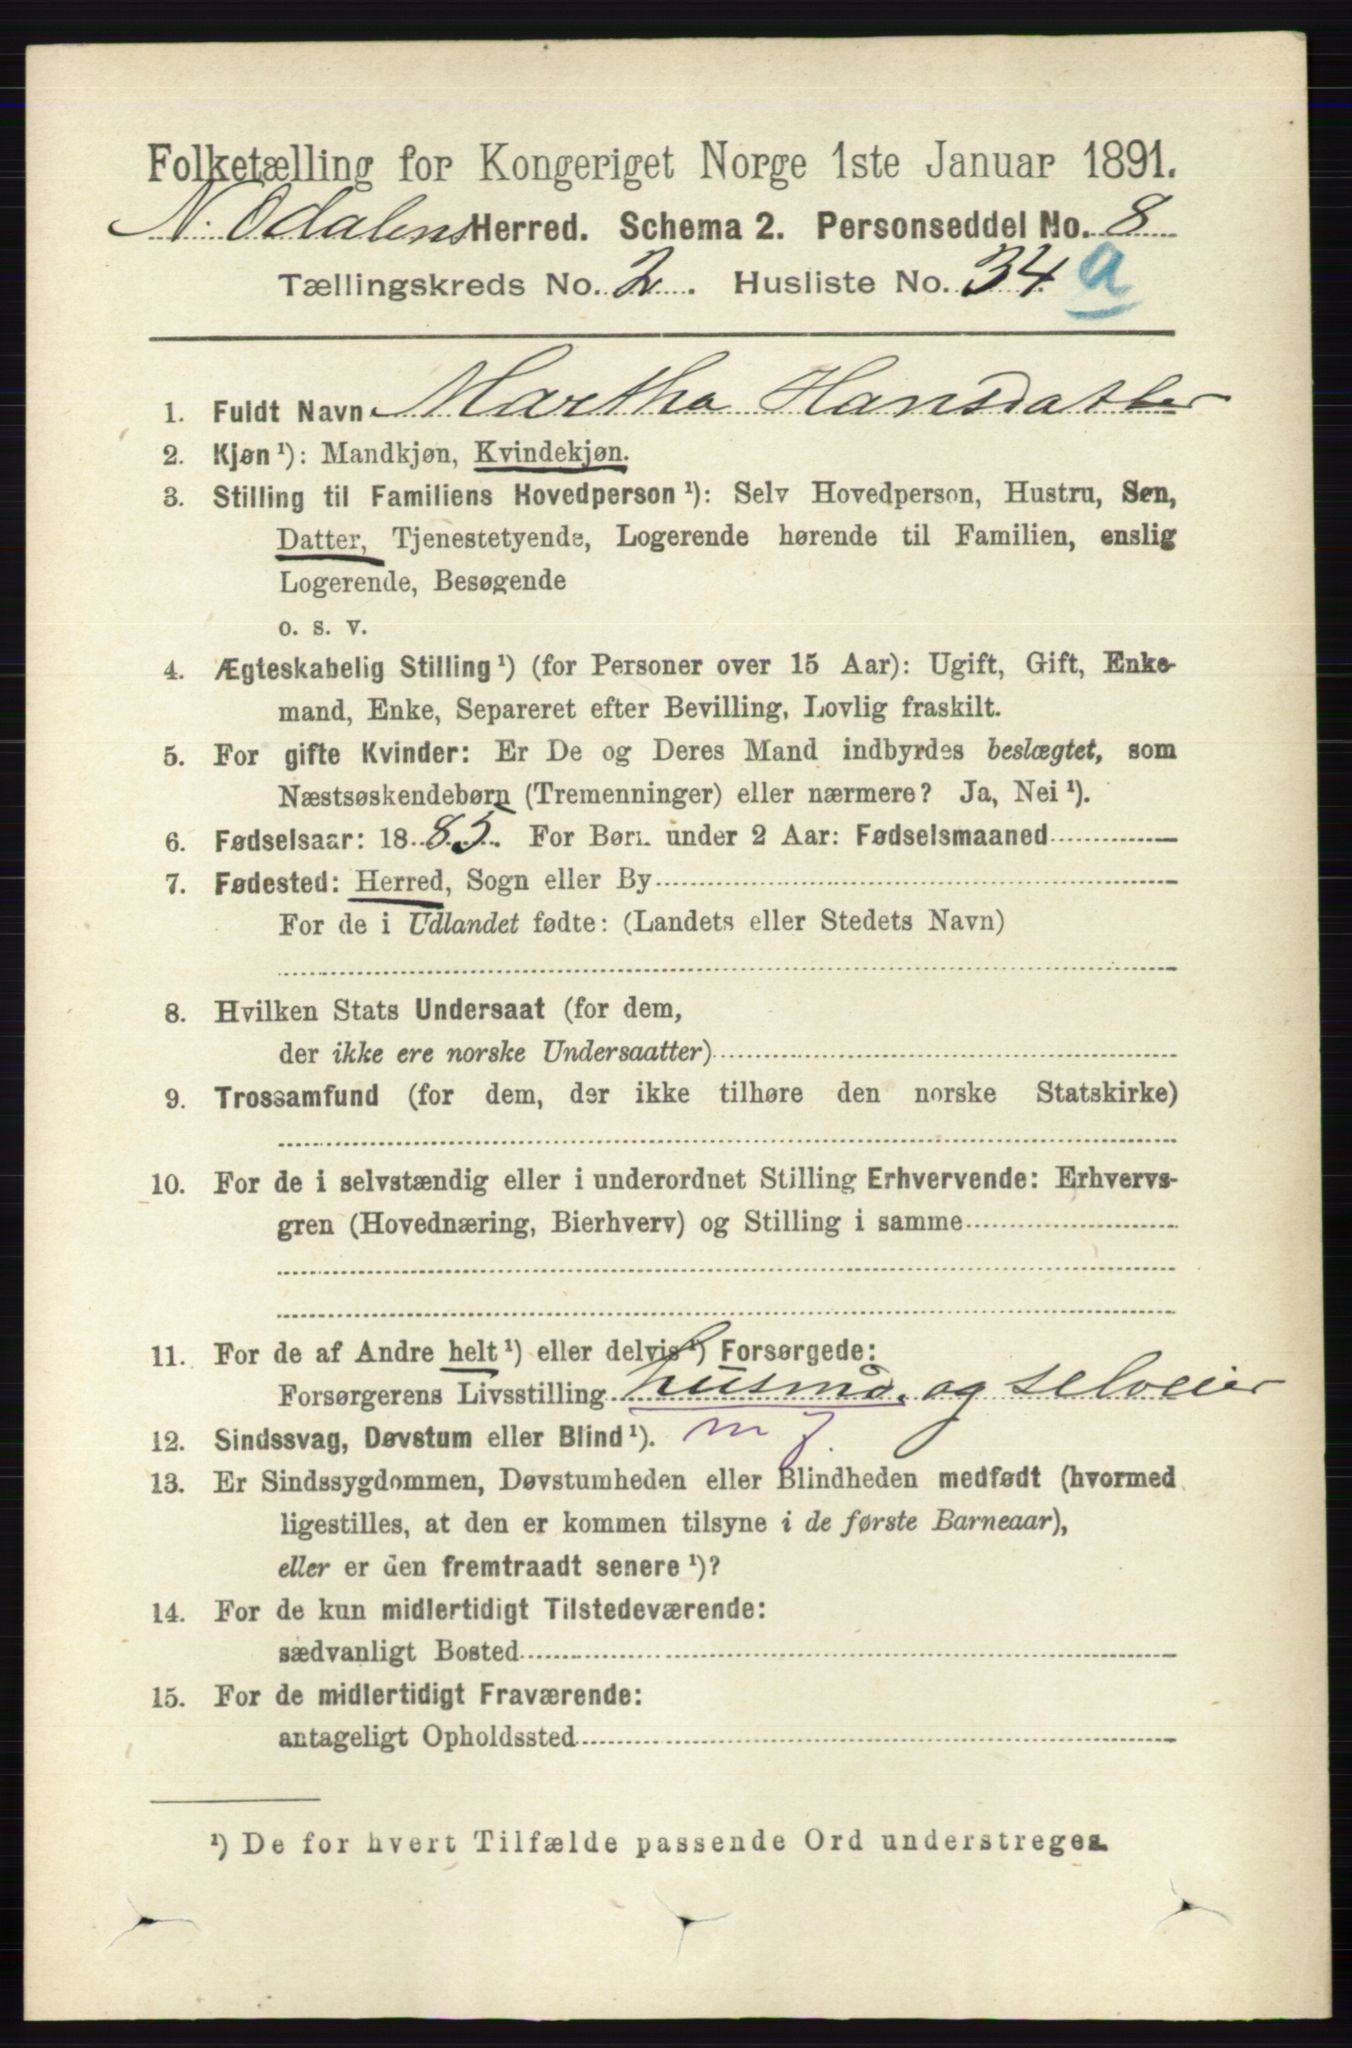 Folketælling for Kongeriget Norge 1ste Januar 1891.
N. Odalens Herred. Schema 2. Personseddel No. 8
Tællingskreds No. 2. Husliste No. 34 a
1. Fuldt Navn Martha Hansdatter
2. Kjøn ¹): Mandkjøn, Kvindekjøn.
3. Stilling til Familiens Hovedperson ¹): Selv Hovedperson, Hustru, Søn,
Datter, Tjenestetyende, Logerende hørende til Familien, enslig
Logerende, Besøgende
o. s. v.
4. Ægteskabelig Stilling ¹) (for Personer over 15 Aar): Ugift, Gift, Enke-
mand, Enke, Separeret efter Bevilling, Lovlig fraskilt.
5. For gifte Kvinder: Er De og Deres Mand indbyrdes beslægtet, som
Næstsøskendebørn (Tremenninger) eller nærmere? Ja, Nei ¹).
6. Fødselsaar: 1885. For Børn under 2 Aar: Fødselsmaaned
7. Fødested: Herred, Sogn eller By
For de i Udlandet fødte: (Landets eller Stedets Navn)
8. Hvilken Stats Undersaat (for dem,
der ikke ere norske Undersaatter)
9. Trossamfund (for dem, der ikke tilhøre den norske Statskirke)
10. For de i selvstændig eller i underordnet Stilling Erhvervende: Erhvervs-
gren (Hovednæring, Bierhverv) og Stilling i samme
11. For de af Andre helt ¹) eller delvis ¹) Forsørgede:
Forsørgerens Livsstilling husmd. og selveier
12. Sindssvag, Døvstum eller Blind ¹).
13. Er Sindssygdommen, Døvstumheden eller Blindheden medfødt (hvormed
ligestilles, at den er kommen tilsyne i de første Barneaar),
eller er den fremtraadt senere ¹)?
14. For de kun midlertidigt Tilstedeværende:
sædvanligt Bosted
15. For de midlertidigt Fraværende:
antageligt Opholdssted
¹) De for hvert Tilfælde passende Ord understreges.